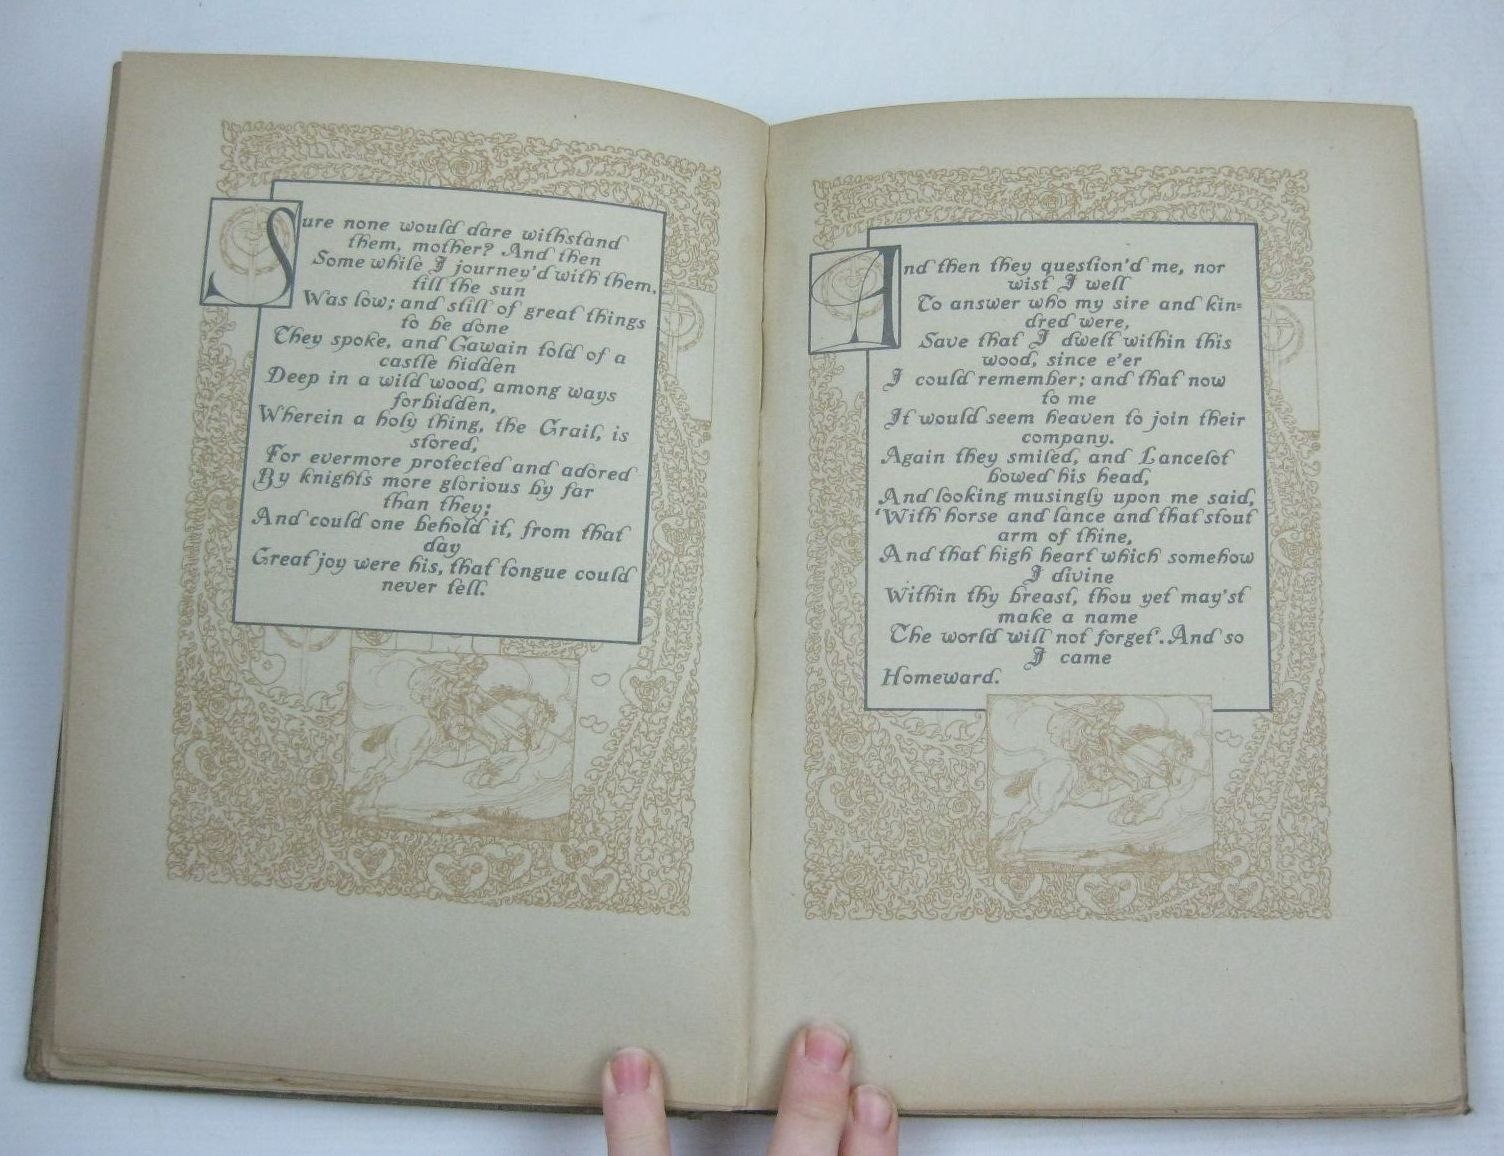 Sure none would dare withstand
them, mother? And then
Some while I journey'd with them,
till the sun
Was low; and still of great things
to be done
They spoke, and Gawain told of a
castle hidden
Deep in a wild wood, among ways
forbidden,
Wherein a holy thing, the Grail, is
stored,
For evermore protected and adored
By knights more glorious by far
than they;
And could one behold it, from that
day
Great joy were his, that tongue could
never tell.
And then they question'd me, nor
wist I well
To answer who my sire and kin=
dred were,
Save that I dwelt within this
wood, since e'er
I could remember; and that now
to me
It would seem heaven to join their
company.
Again they smiled, and Lancelot
bowed his head,
And looking musingly upon me said,
'With horse and lance and that stout
arm of thine,
And that high heart which somehow
I divine
Within thy breast, thou yet may'st
make a name
The world will not forget'. And so
I came
Homeward.